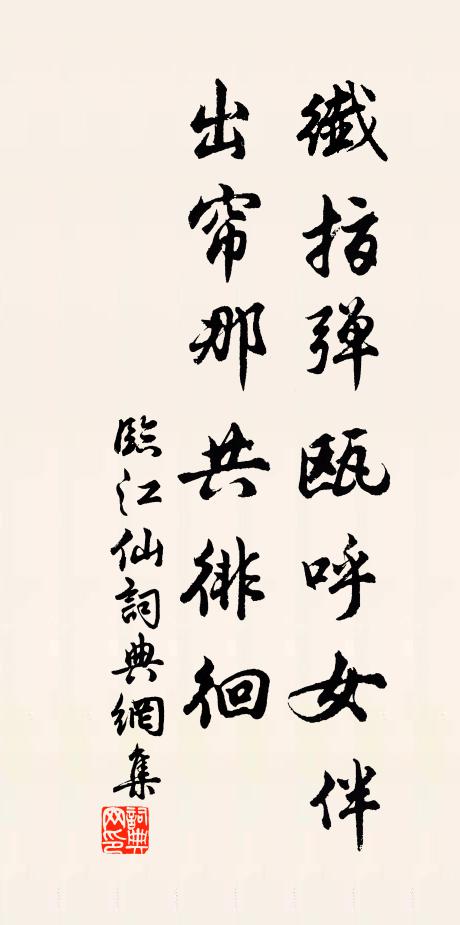 纖指弹瓯呼女伴
出帘那共徘徊
臨江仙詞典網集
詞典网印